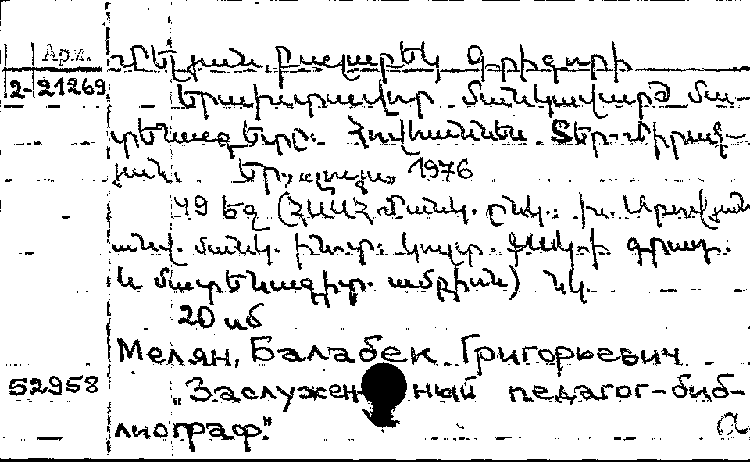 Арм. Մելյան, Բալաբեկ Գրիգորի
2-21269 Երախտավոր մանկավարժ մա-
տենագետը: Հովհաննես Տեր-Միրաք-
յան. Եր., 1976
49 եզ (ՀՍՍՀ Մանկ. ընկ.: Խ. Աբովյան
անվ. մանկ. ինստ: կուլտ. ֆակ-ի գրադ.
և մատենագիտ. ամբիոն) նկ.
20 սմ
Мелян, Балабек Григорьевич
52958 "Заслуженный педагог-биб-
лиограф."